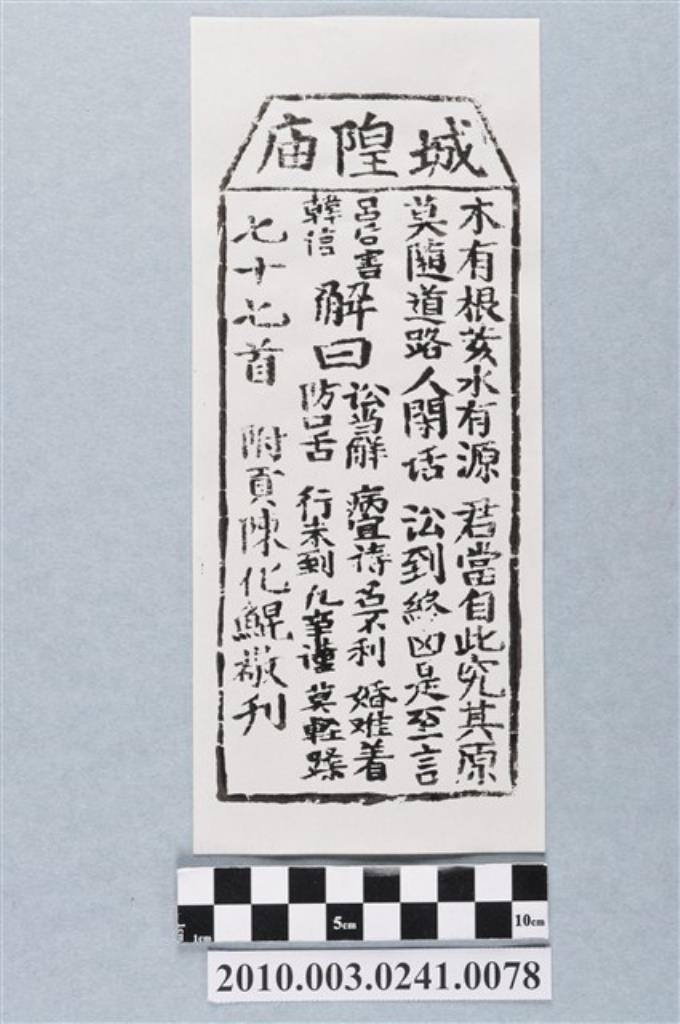 城隍庙
木有根荄水有源 君當自此究其原
莫随道路人閑话 讼到終凶是至言
呂后害
韓信
解曰
讼当解 病宜祷 名不利 婚难着
防口舌 行未到 凡事谨 莫輕躁
七十七首 附貢陳化鯤敬刊
1cm 5cm 10cm
2010.003.0241.0078